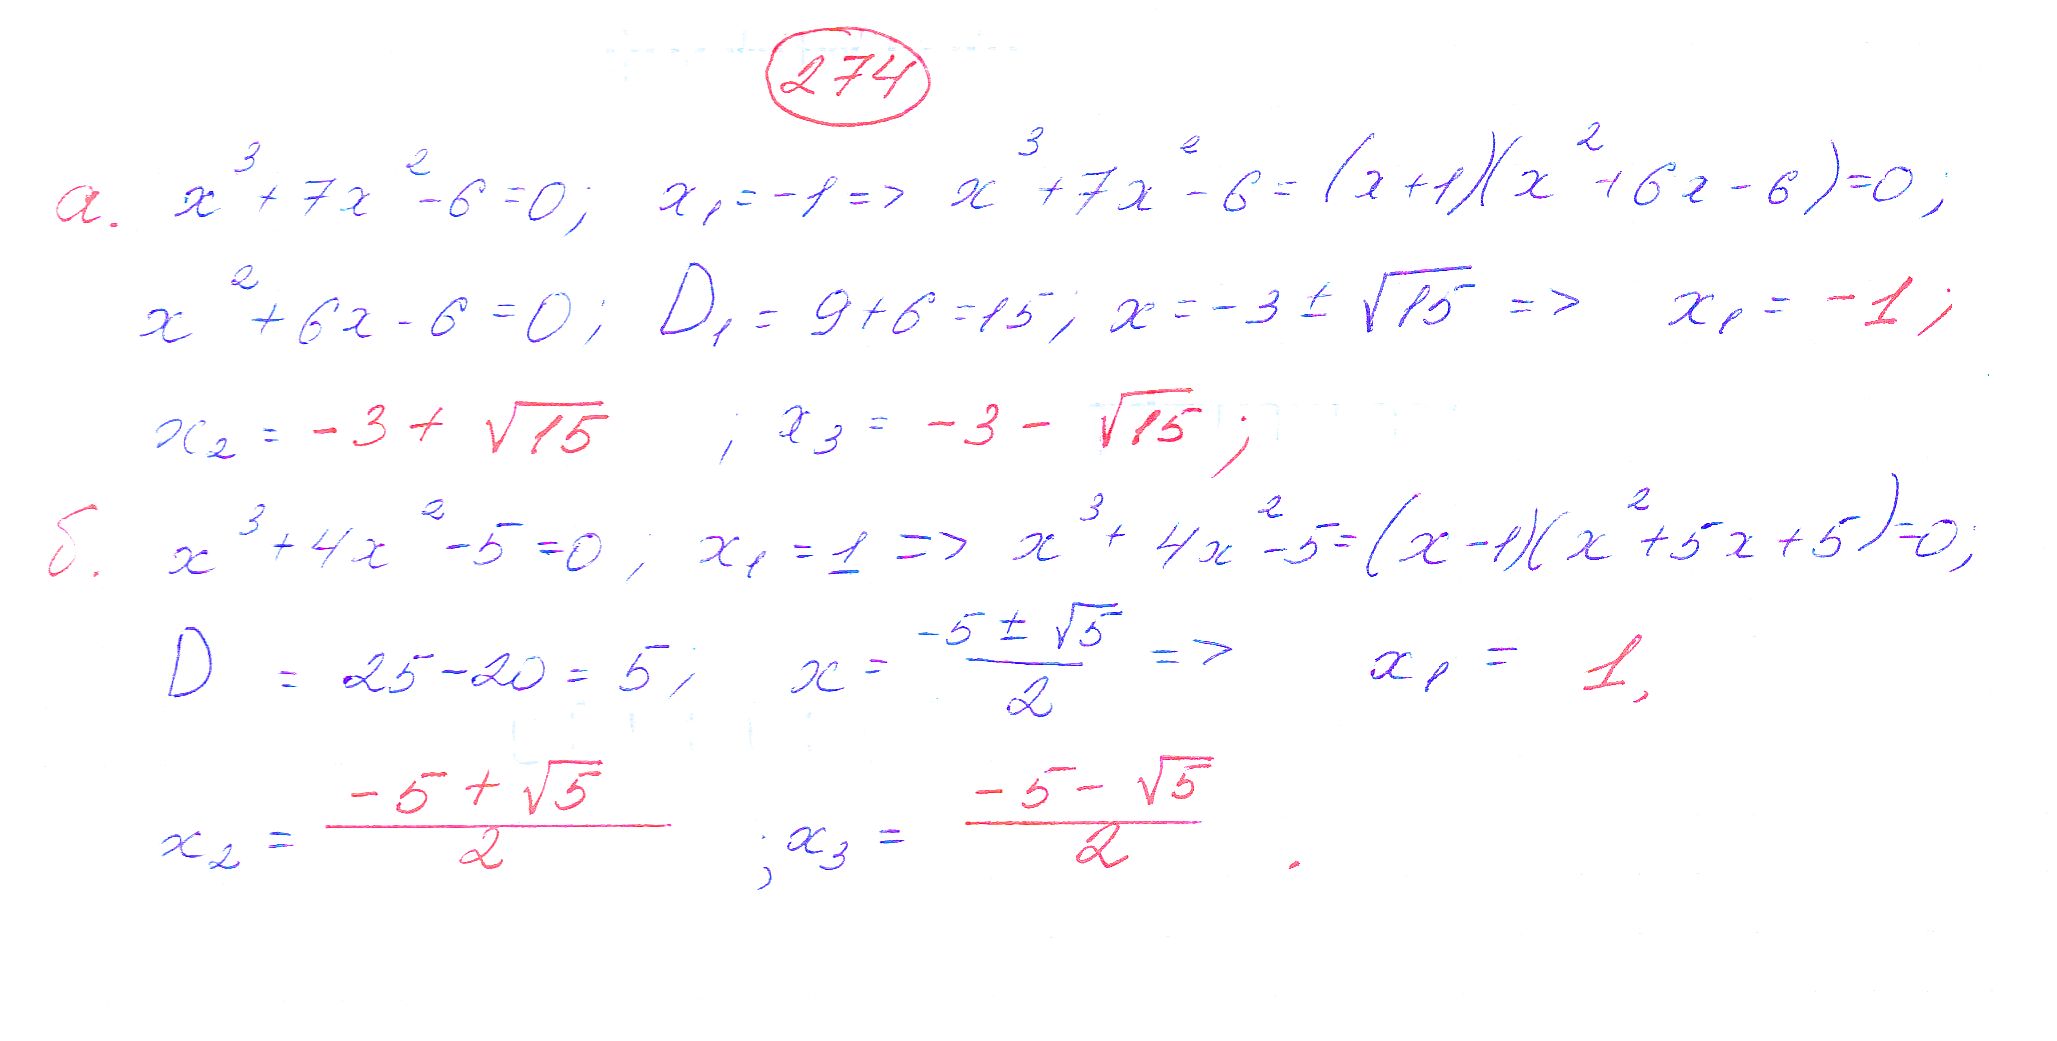 274
а. x³+7x²-6=0; x₁=-1=> x³+7x²-6=(x+1)(x²+6x-6)=0;
x²+6x-6=0; D₁=9+6=15; x=-3±√15 => x₁=-1;
x₂=-3+√15 ; x₃=-3-√15;
б. x³+4x²-5=0; x₁=1=> x³+4x²-5=(x-1)(x²+5x+5)=0;
D=25-20=5; x=(-5±√5)/2 => x₁=1,
x₂=(-5+√5)/2 ; x₃=(-5-√5)/2.